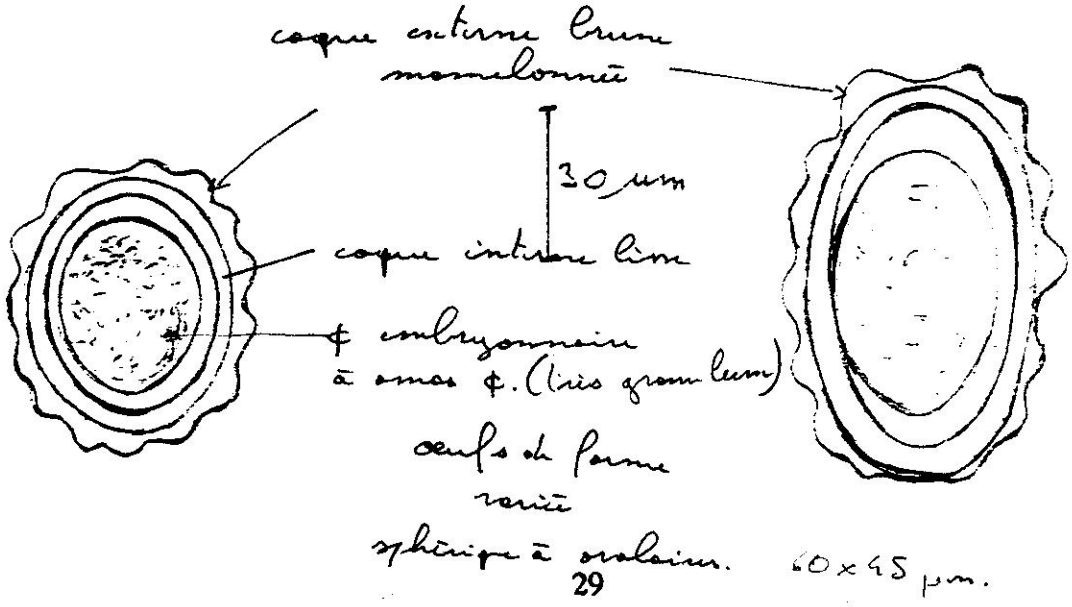 coque externe brune
mamelonnée
30 µm
coque interne lisse
¢ embryonnaire
à amas ¢. (très granuleux)
œufs de forme
variée
sphérique à ovalaires.
60 x 45 µm.
29